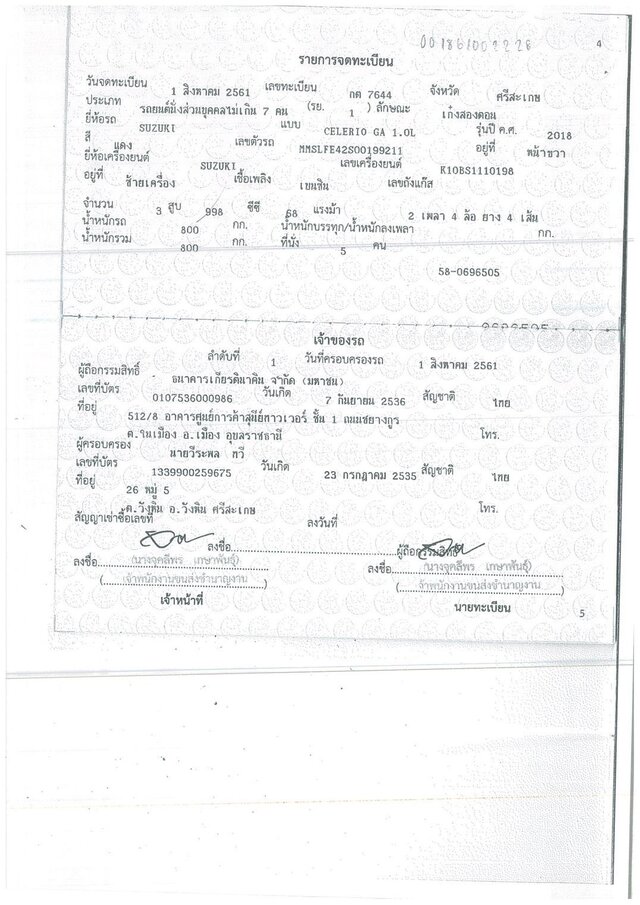 001861002226
4
รายการจดทะเบียน
วันจดทะเบียน 1 สิงหาคม 2561 เลขทะเบียน กต 7644 จังหวัด ศรีสะเกษ
ประเภท รถยนต์นั่งส่วนบุคคลไม่เกิน 7 คน (รย. 1 ) ลักษณะ เก๋งสองตอน
ยี่ห้อรถ SUZUKI แบบ CELERIO GA 1.0L รุ่นปี ค.ศ. 2018
สี แดง เลขตัวรถ MMSLFE42S00199211 อยู่ที่ หน้าขวา
ยี่ห้อเครื่องยนต์ SUZUKI เลขเครื่องยนต์ K10BS1110198
อยู่ที่ ซ้ายเครื่อง เชื้อเพลิง เบนซิน เลขถังแก๊ส
จำนวน 3 สูบ 998 ซีซี 68 แรงม้า 2 เพลา 4 ล้อ ยาง 4 เส้น
น้ำหนักรถ 800 กก. น้ำหนักบรรทุก/น้ำหนักลงเพลา กก.
น้ำหนักรวม 800 กก. ที่นั่ง 5 คน
58-0696505
เจ้าของรถ
ลำดับที่ 1 วันที่ครอบครองรถ 1 สิงหาคม 2561
ผู้ถือกรรมสิทธิ์ ธนาคารเกียรตินาคิน จำกัด (มหาชน)
เลขที่บัตร 0107536000986 วันเกิด 7 กันยายน 2536 สัญชาติ ไทย
ที่อยู่ 512/8 อาคารศูนย์การค้าสุนีย์ทาวเวอร์ ชั้น 1 ถนนชยางกูร
ต.ในเมือง อ.เมือง อุบลราชธานี โทร.
ผู้ครอบครอง นายวีระพล ทวี
เลขที่บัตร 1339900259675 วันเกิด 23 กรกฎาคม 2535 สัญชาติ ไทย
ที่อยู่ 26 หมู่ 5
ต.วังหิน อ.วังหิน ศรีสะเกษ โทร.
สัญญาเช่าซื้อเลขที่ ลงวันที่
ลงชื่อ ผู้ถือกรรมสิทธิ์
ลงชื่อ (นางจุคลีพร เกษาพันธุ์) ลงชื่อ (นางจุคลีพร เกษาพันธุ์)
(เจ้าพนักงานขนส่งชำนาญงาน) (เจ้าพนักงานขนส่งชำนาญงาน)
เจ้าหน้าที่ นายทะเบียน
5